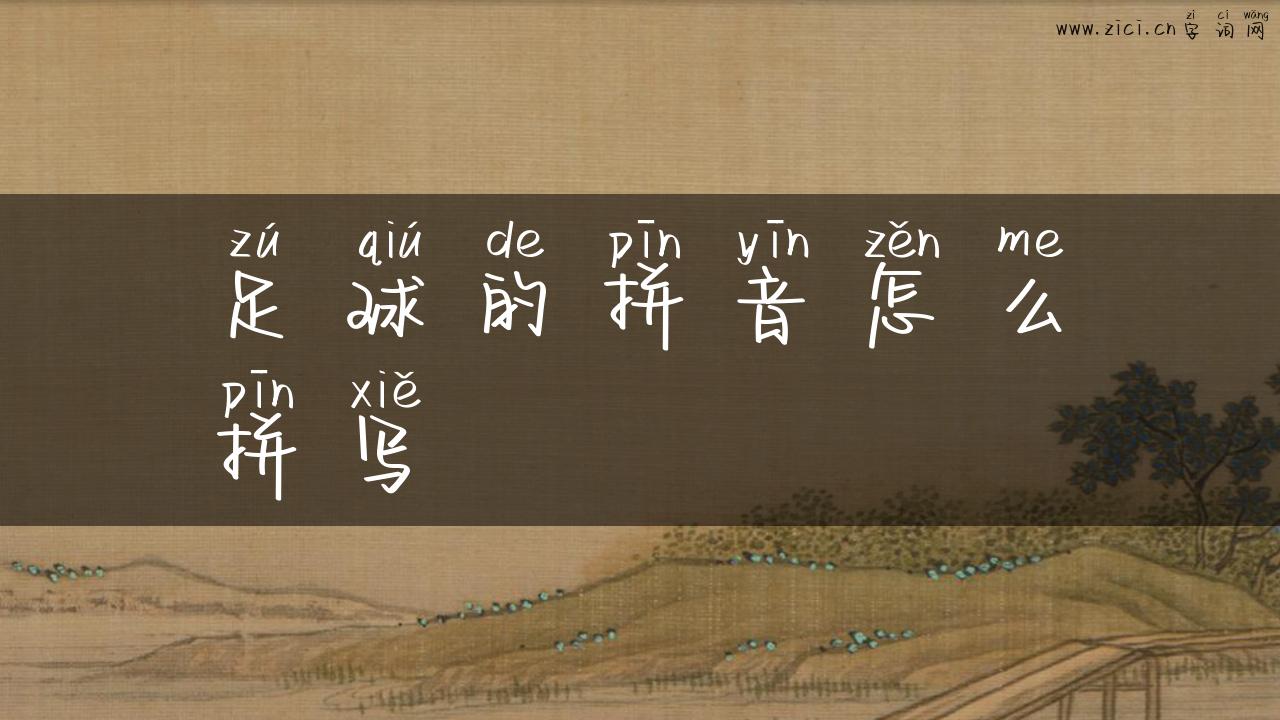 zì cí wǎng
www.zici.cn字词网
zú qiú de pīn yīn zěn me
足球的拼音怎么
pīn xiě
拼写